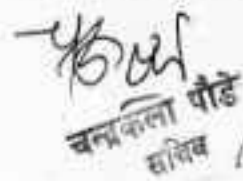 चन्द्रकला पौडे
सचिव